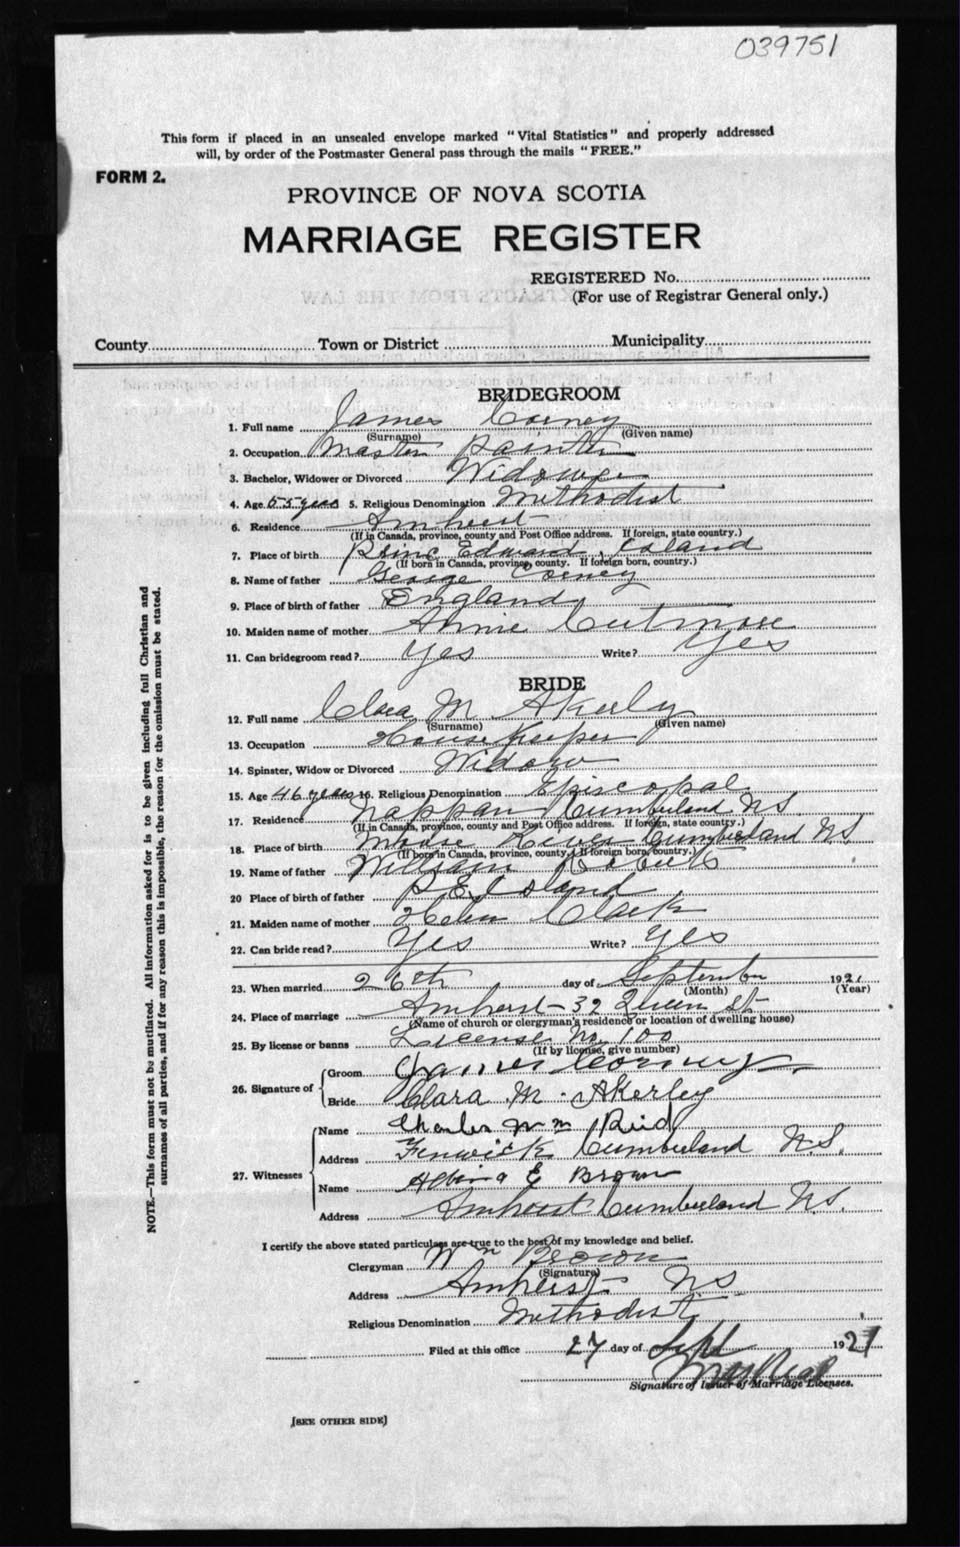 039751
This form if placed in an unsealed envelope marked "Vital Statistics" and properly addressed
will, by order of the Postmaster General pass through the mails "FREE."
FORM 2.
PROVINCE OF NOVA SCOTIA
MARRIAGE REGISTER
REGISTERED No.
(For use of Registrar General only.)
EXTRACTS FROM THE LAW
County Town or District Municipality
BRIDEGROOM
1. Full name James Corney
(Surname) (Given name)
2. Occupation Master Painter
3. Bachelor, Widower or Divorced Widower
4. Age 55 years 5. Religious Denomination Methodist
6. Residence Amherst
(If in Canada, province, county and Post Office address. If foreign, state country.)
7. Place of birth Prince Edward Island
(If born in Canada, province, county. If foreign born, country.)
8. Name of father George Corney
9. Place of birth of father England
10. Maiden name of mother Annie Cutmore
11. Can bridegroom read? Yes Write? Yes
BRIDE
12. Full name Clara M Akerly
(Surname) (Given name)
13. Occupation House Keeper
14. Spinster, Widow or Divorced Widow
15. Age 46 years 16. Religious Denomination Episcopal
17. Residence Nappan Cumberland N.S.
(If in Canada, province, county and Post Office address. If foreign, state country.)
18. Place of birth Moose River Cumberland N.S.
(If born in Canada, province, county. If foreign born, country.)
19. Name of father William Roberts
20 Place of birth of father P.E. Island
21. Maiden name of mother Helen Clark
22. Can bride read? Yes Write? Yes
23. When married 26th day of September 1921
(Month) (Year)
24. Place of marriage Amherst - 32 Queen St
(Name of church or clergyman's residence or location of dwelling house)
25. By license or banns License No. 100
(If by license, give number)
26. Signature of Groom James Corney
Bride Clara M. Akerley
27. Witnesses Name Charles Wm Reid
Address Fenwick Cumberland N.S.
Name Albina E Brown
Address Amherst Cumberland N.S.
I certify the above stated particulars are true to the best of my knowledge and belief.
Clergyman Wm Brown
(Signature)
Address Amherst N.S.
Religious Denomination Methodist
Filed at this office 27 day of Sept 1921
Signature of Issuer of Marriage Licenses.
[SEE OTHER SIDE]
NOTE.—This form must not be mutilated. All information asked for is to be given including full Christian and
surnames of all parties, and if for any reason this is impossible, the reason for the omission must be stated.